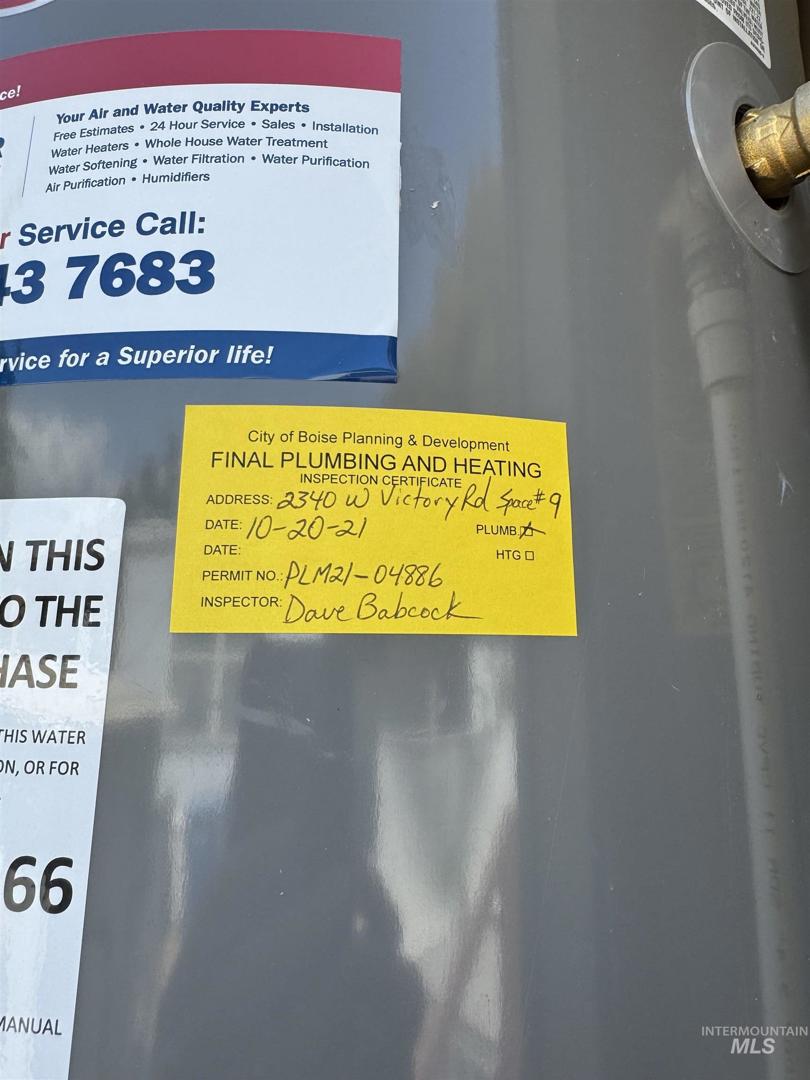 ce!
Your Air and Water Quality Experts
Free Estimates • 24 Hour Service • Sales • Installation
Water Heaters • Whole House Water Treatment
Water Softening • Water Filtration • Water Purification
Air Purification • Humidifiers
r Service Call:
43 7683
rvice for a Superior life!
City of Boise Planning & Development
FINAL PLUMBING AND HEATING
INSPECTION CERTIFICATE
ADDRESS: 2340 W Victory Rd Space #9
DATE: 10-20-21 PLUMB.
DATE: HTG
PERMIT NO.: PLM21-04886
INSPECTOR: Dave Babcock
N THIS
O THE
HASE
THIS WATER
ON, OR FOR
66
MANUAL
INTERMOUNTAIN
MLS